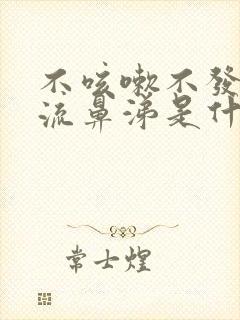 不咳嗽不發
流鼻涕是什
常士煌